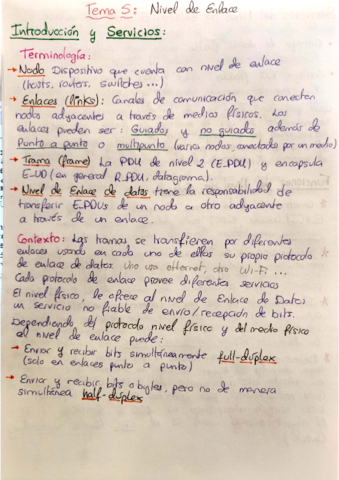 Tema 5: Nivel de Enlace
Introducción y Servicios:
Terminología:
→ Nodo Dispositivo que cuenta con nivel de enlace
(hosts, routers, switches ...)
→ Enlaces (links): Canales de comunicación que conecten
nodos adyacentes a través de medios físicos. Los
enlaces pueden ser: Guiados y no guiados además de
Punto a punto o multipunto (varios nodos conectados por un medio)
→ Trama (frame) La PDU de nivel 2 (E_PDU) y encapsula
E_UD (en general R_PDU, datagrama).
→ Nivel de Enlace de datos tiene la responsabilidad de
transferir E_PDUs de un nodo a otro adyacente
a través de un enlace.
Contexto: Las tramas se transfieren por diferentes
enlaces usando en cada uno de ellos su propio protocolo
de enlace de datos. Uno usa ethernet, otro Wi-Fi ...
Cada protocolo de enlace provee diferentes servicios
El nivel físico, le ofrece al nivel de Enlace de Datos
un servicio no fiable de envío/recepción de bits.
Dependiendo del protocolo nivel físico y del medio físico
el nivel de enlace puede:
→ Enviar y recibir bits simultáneamente full-duplex
(solo en enlaces punto a punto)
→ Enviar y recibir bits o bytes, pero no de manera
simultánea half-duplex